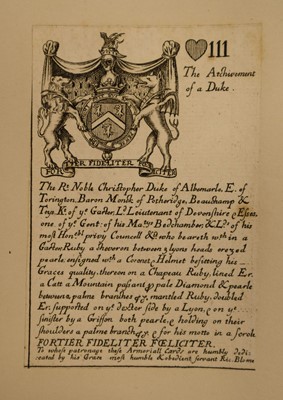 III
The Atchivement
of a Duke.
FORTITER FIDELITER FOELICITER
The Rt. Noble Christopher Duke of Albemarle, E. of
Torington, Baron Monck of Potheridge, Beauchamp &
Teys, Kt. of ye. Garter, Ld. Lieutenant of Devonshire & Essex,
one of ye. Gent: of his Matys. Bedchamber, & Ld. of his
most Honble. privy Councell &c who beareth wth. in a
Garter Ruby a cheveron between 3 lyons heads erazed
pearle, ensigned with a Coronet & Helmet befitting his
Graces quality, thereon on a Chapeau Ruby, lined Er.
a Catt a Mountain pasant pale Diamond & pearle
between 2 palme branches mantled Ruby, doubled
Er. supported on ye. dexter side by a Lyon, & on ye.
sinister by a Griffon both pearle, & holding on their
shoulders a palme branch & for his motto in a scrole
FORTIER FIDELITER FŒLICITER.
To whose patronage these Armoriall Cards are humbly dedi:
cated by his Graces most humble & obedient servant Ric. Blome